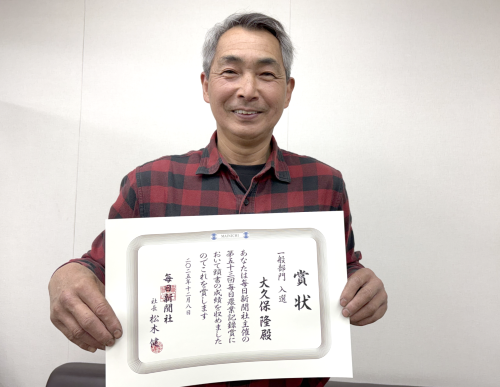 賞状
一般部門 入選
大久保 隆殿
あなたは毎日新聞社主催の
第五十三回毎日農業記録賞に
おいて頭書の成績を収めました
のでこれを賞します
二〇二五年十二月八日
毎日新聞社
社長 松木 健